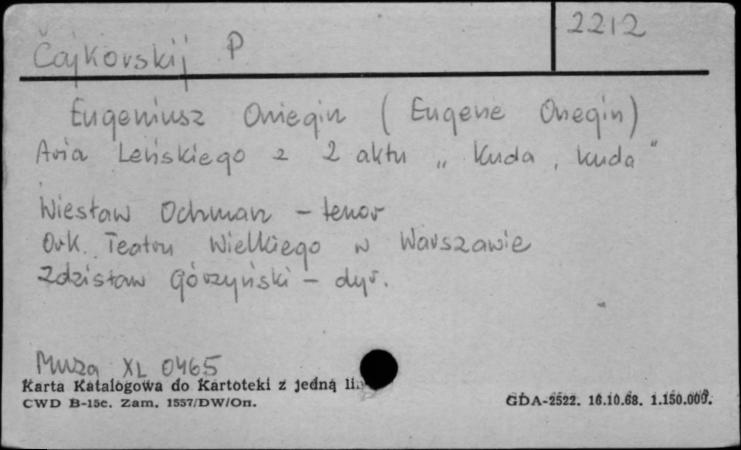 Čajkovskij P 2212
Eugeniusz Oniegin ( Eugene Onegin)
Aria Leńskiego z 2 aktu „ Kuda , kuda "
Wiesław Ochman - tenor
Ork. Teatru Wielkiego w Warszawie
Zdzisław Górzyński - dyr.
Muza XL 0465
Karta Katalogowa do Kartoteki z jedną
CWD B-15c. Zam. 1557/DW/On. GDA-2522. 16.10.68. 1.150.000.